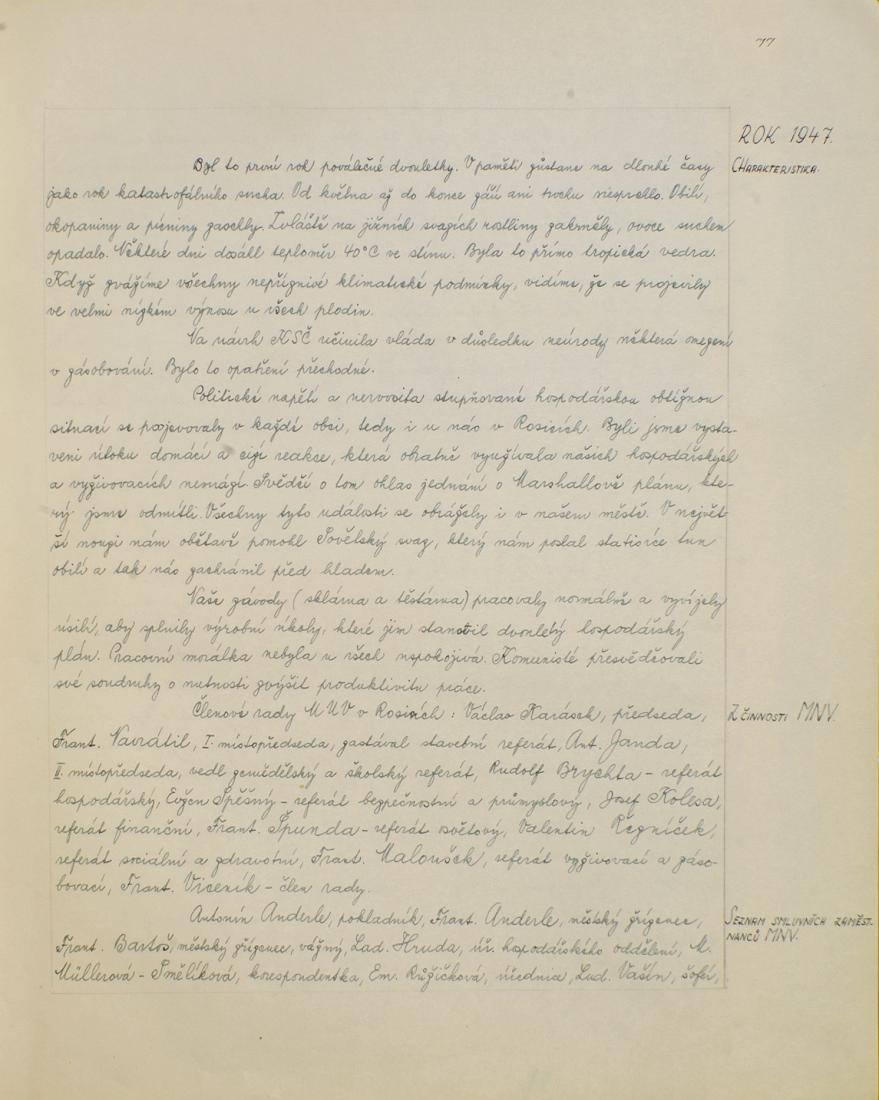 77
ROK 1947.
CHARAKTERISTIKA.
Byl to první rok poválečné dvouletky. V paměti zůstane na dlouhé časy
jako rok katastrofálního sucha. Od května až do konce září ani trochu nesprchlo. Obilí,
okopaniny a pícniny zaschly. Zvláště na jižních svazích rostliny zakrněly, ovoce suchem
opadalo. Některé dni dosáhl teploměr 40°C ve stínu. Byla to přímo tropická vedra.
Když zvážíme všechny nepříznivé klimatické podmínky, vidíme, že se projevily
ve velmi nízkém výnosu u všech plodin.
Na návrh KSČ učinila vláda v důsledku neúrody některá omezení
v zásobování. Bylo to opatření přechodné.
Politické napětí a nervosita stupňované hospodářskou obtížnou
situací se projevovaly v každé obci, tedy i u nás v Rosicích. Byli jsme vysta-
veni útoku domácí a cizí reakce, která obratně využívala našich hospodářských
a vyživovacích nesnází. Svědčí o tom ohlas jednání o Marshallově plánu, kte-
rý jsme odmítli. Všechny tyto události se obrážely i v našem městě. V největ-
ší nouzi nám obětavě pomohl Sovětský svaz, který nám poslal statisíce tun
obilí a tak nás zachránil před hladem.
Naše závody (sklárna a těstárna) pracovaly normálně a vyvíjely
úsilí, aby splnily výrobní úkoly, které jim stanovil dvouletý hospodářský
plán. Pracovní morálka nebyla u všech uspokojivá. Komunisté přesvědčovali
své soudruhy o nutnosti zvýšit produktivitu práce.
Z ČINNOSTI MNV.
Členové rady MNV v Rosicích: Václav Karásek, předseda,
Frant. Navrátil, I. místopředseda, zastával stavební referát, Ant. Janda,
II. místopředseda, vedl zemědělský a školský referát, Rudolf Brychta - referát
hospodářský, Evžen Spěšný - referát bezpečnostní a průmyslový, Josef Kolesa,
referát finanční, Frant. Špunda - referát osvětový, Valentin Řezníček,
referát sociální a zdravotní, Frant. Maloušek, referát vyživovací a záso-
bovací, Frant. Viceník - člen rady.
SEZNAM SMLUVNÍCH ZAMĚST-
NANCŮ MNV.
Antonín Anderle, pokladník, Frant. Anderle, městský zřízenec,
Frant. Bartoš, městský zřízenec, vážný, Lad. Hruda, úř. hospodářského oddělení, M.
Müllerová - Smělíková, korespondentka, Em. Růžičková, úřednice, Lud. Vašín, šofér,